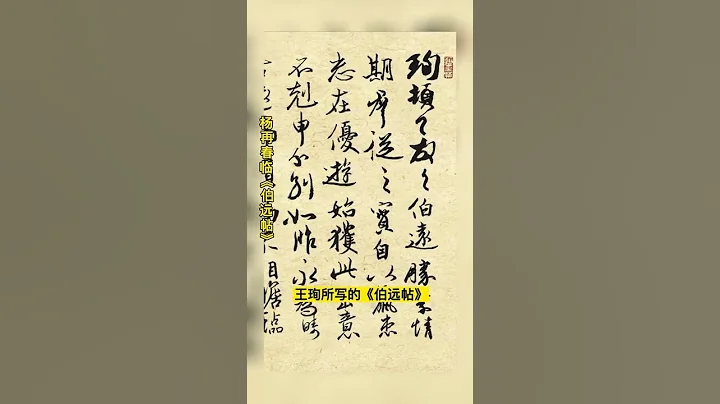 珣頓々首々伯遠勝業情
期群從之寶自以羸患
志在優遊始獲此出意
不剋申分別如昨永為疇
杨再春临《伯远帖》
王珣所写的《伯远帖》